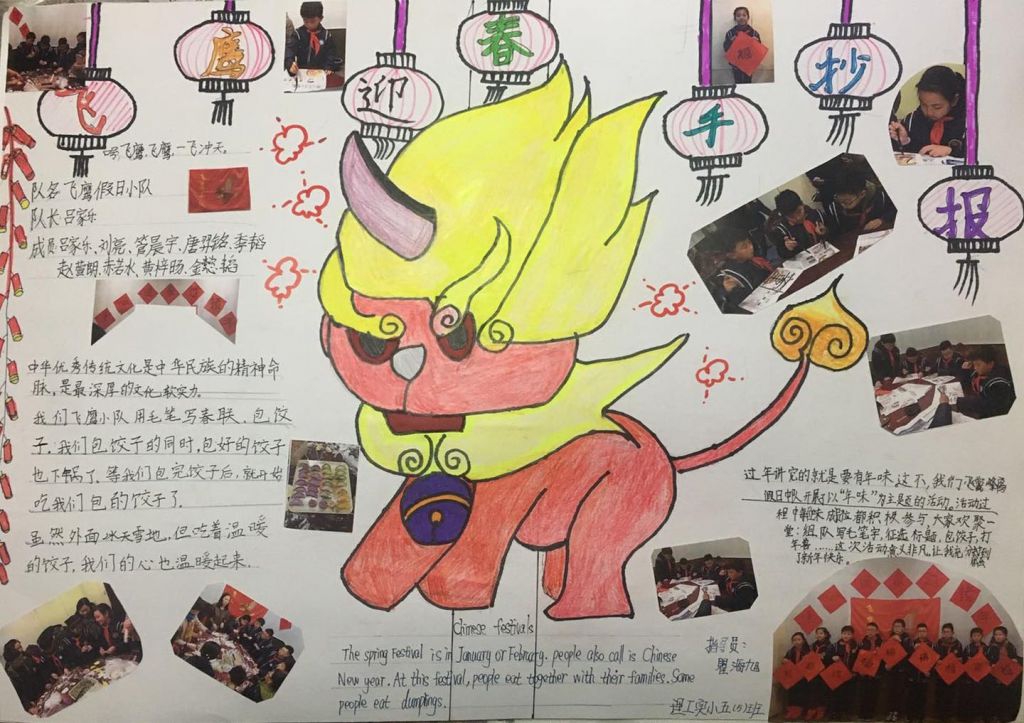 飞鹰迎春手抄报
啊飞鹰,飞鹰,一飞冲天。
队名飞鹰假日小队
队长吕家乐
成员吕家乐、刘亮、管晨宇、唐羿铭、李韬
赵黄明、赤若水、黄梓旸、金懿韬
中华优秀传统文化是中华民族的精神命
脉,是最深厚的文化软实力。
我们飞鹰小队用毛笔写春联、包饺
子。我们包饺子的同时,包好的饺子
也下锅了。等我们包完饺子后,就开始
吃我们包的饺子了。
虽然外面冰天雪地,但吃着温暖
的饺子,我们的心也温暖起来。
过年讲究的就是要有年味,这不,我们飞鹰
假日小队开展了以“年味”为主题的活动。活动过
程中 都积极参与,大家欢聚一
堂:组队写毛笔字,征选标题,包饺子,打
年 ……这次活动意义非凡,让我充分感到
了新年快乐。
Chinese festivals
The spring Festival is in January or February. people also call is Chinese
New year. At this fastival, people eat together with their families. Some
people eat dumplings.
指导员:
瞿海旭
理工实小五(5)班